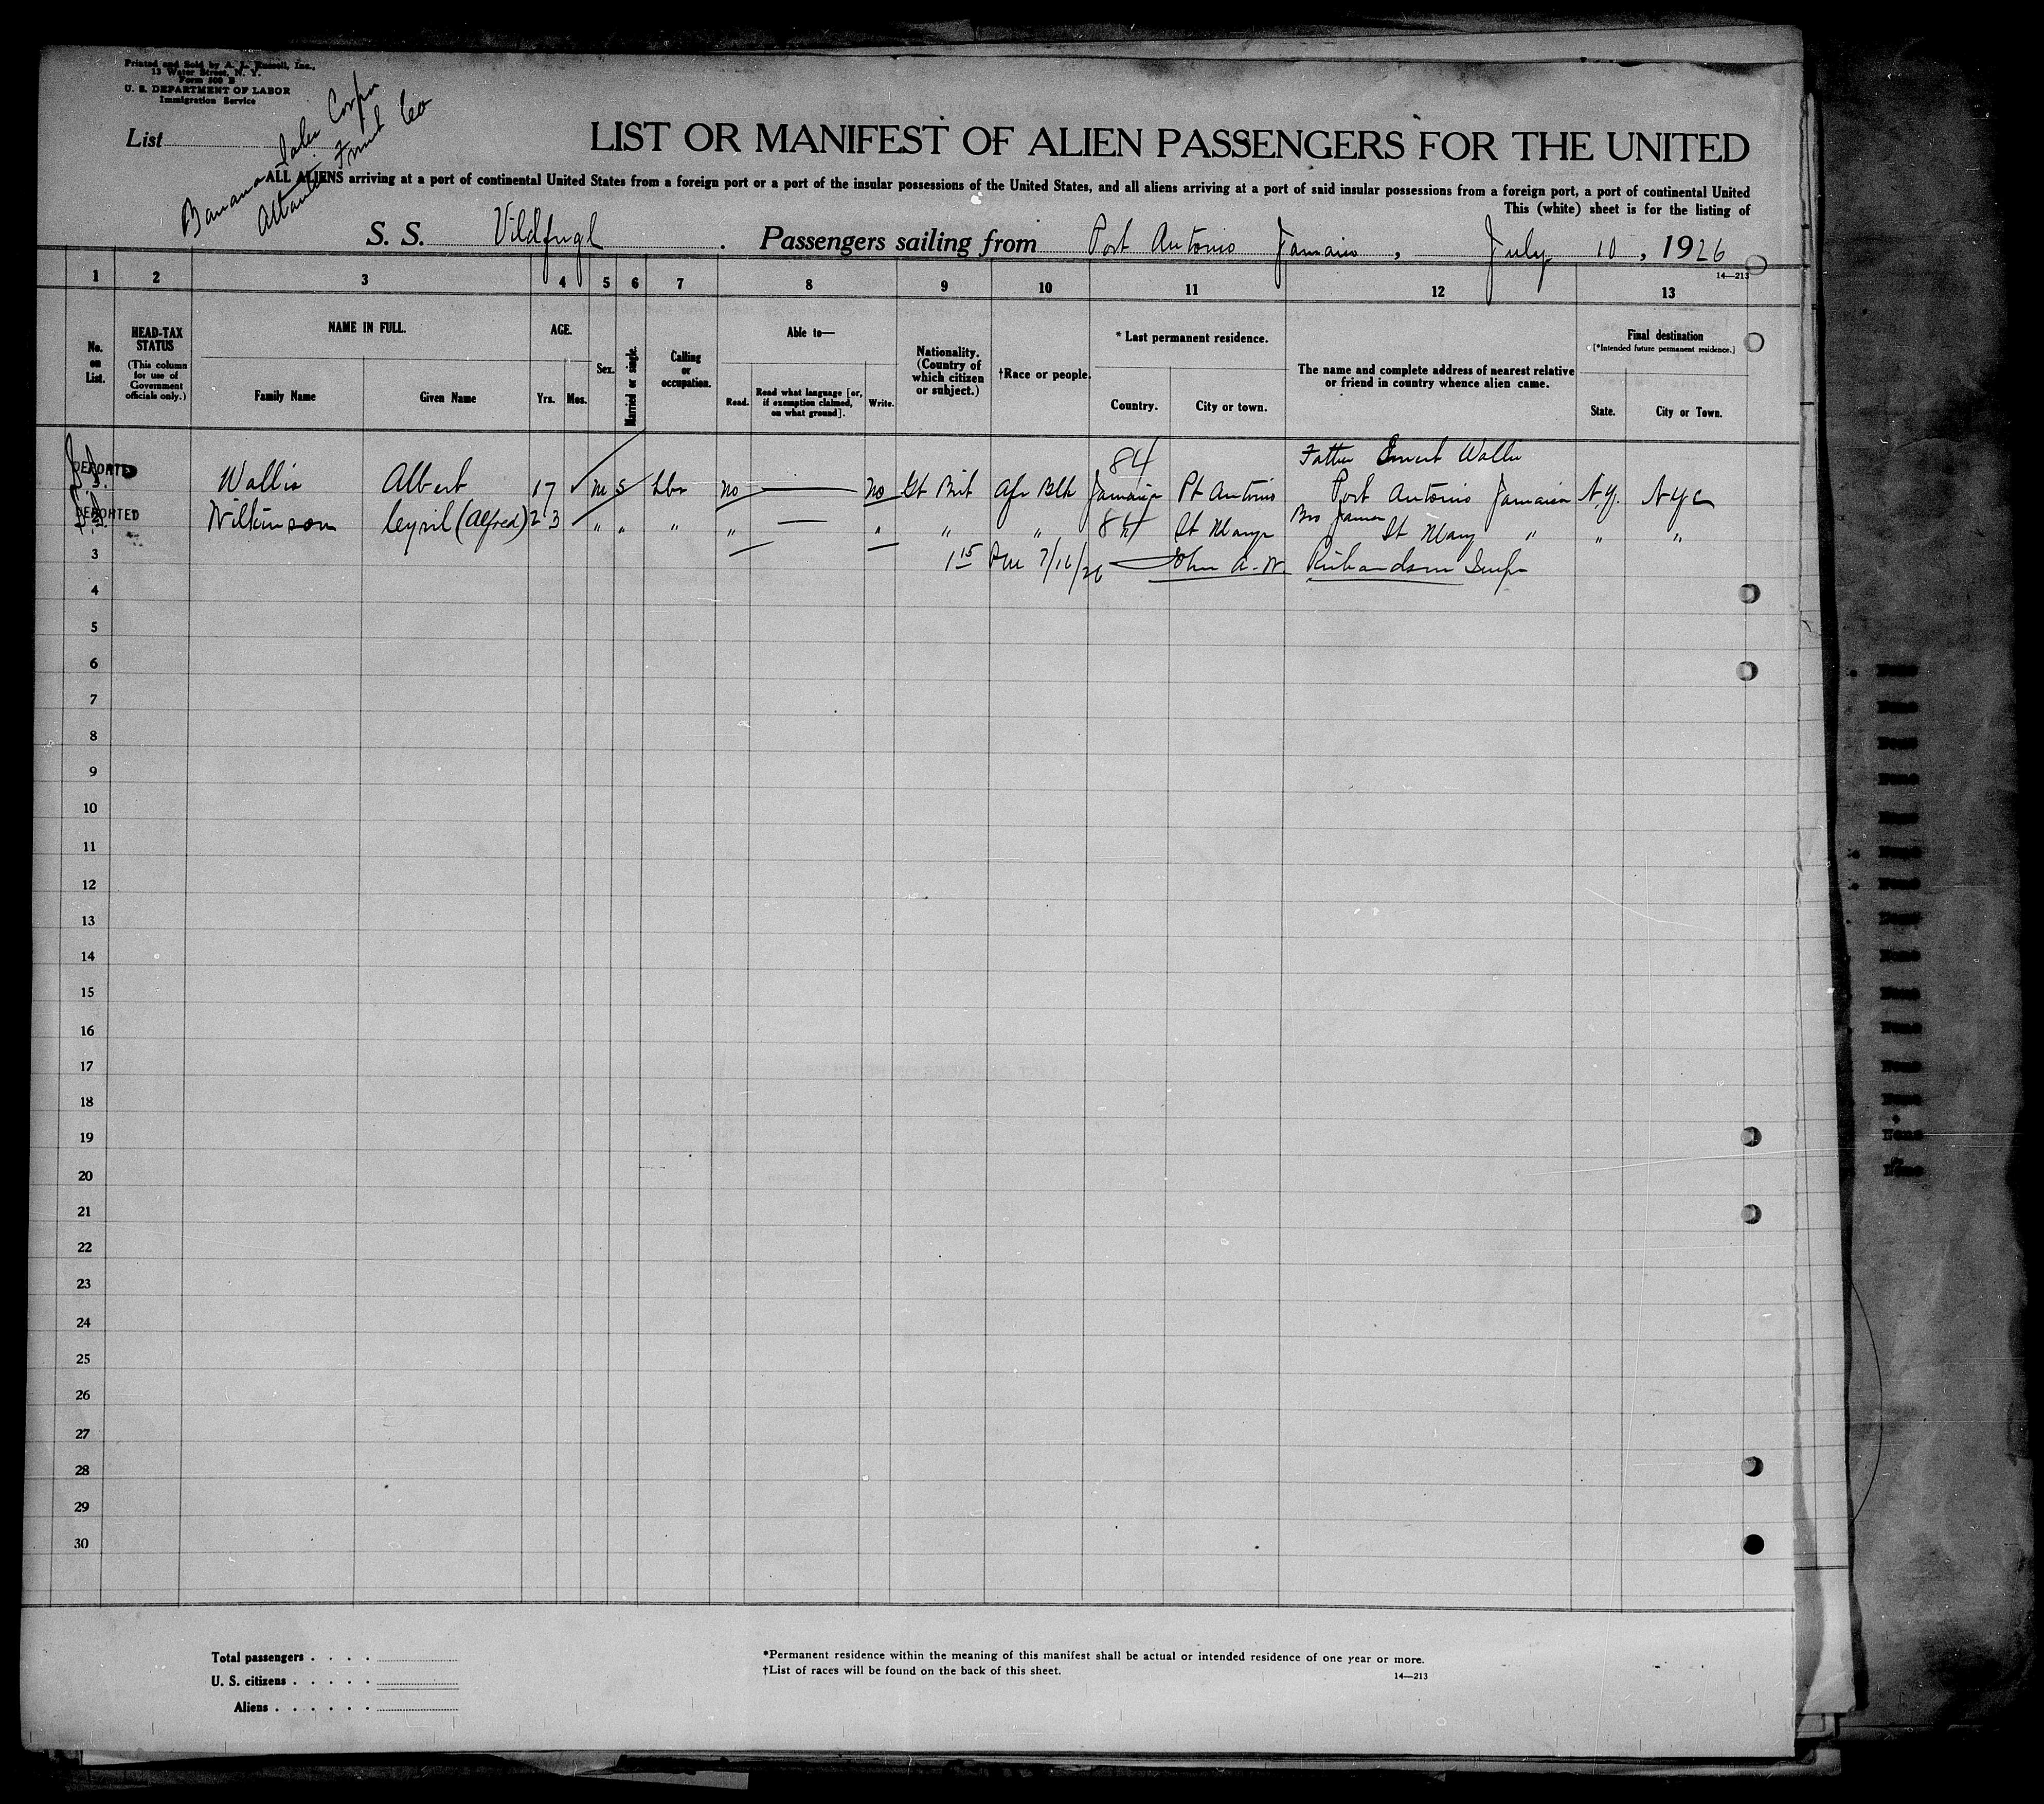 Printed and Sold by A. L. Russell, Inc.,
13 Water Street, N. Y.
Form 500 B
U. S. DEPARTMENT OF LABOR
Immigration Service
List
Banana Sales Corpn
Atlantic Fruit Co
LIST OR MANIFEST OF ALIEN PASSENGERS FOR THE UNITED
ALL ALIENS arriving at a port of continental United States from a foreign port or a port of the insular possessions of the United States, and all aliens arriving at a port of said insular possessions from a foreign port, a port of continental United
This (white) sheet is for the listing of
S. S. Vildfugl . Passengers sailing from Port Antonio Jamaica , July 10 , 1926
14—213
1 2 3 4 5 6 7 8 9 10 11 12 13
No. on List.
HEAD-TAX STATUS
(This column for use of Government officials only.)
NAME IN FULL.
Family Name Given Name
AGE.
Yrs. Mos.
Sex.
Married or single.
Calling or occupation.
Able to—
Read. Read what language [or, if exemption claimed, on what ground]. Write.
Nationality. (Country of which citizen or subject.)
†Race or people.
* Last permanent residence.
Country. City or town.
The name and complete address of nearest relative or friend in country whence alien came.
Final destination
[*Intended future permanent residence.]
State. City or Town.
84 Father Ernest Wallis
DEPORTED Wallis Albert 17 m s Lbr no no Gt Brit Afr Blk Jamaica Pt Antonio Port Antonio Jamaica N.Y. N Y C
DEPORTED Wilkinson Cyril (Alfred) 23 " " " " " " " 84 St Marys Bro James St Mary " " "
3 1 15 PM 7/16/26 John A. W. Richardson Insp
4
5
6
7
8
9
10
11
12
13
14
15
16
17
18
19
20
21
22
23
24
25
26
27
28
29
30
Total passengers . . . .
U. S. citizens . . . . .
Aliens . . . . . .
*Permanent residence within the meaning of this manifest shall be actual or intended residence of one year or more.
†List of races will be found on the back of this sheet.
14—213